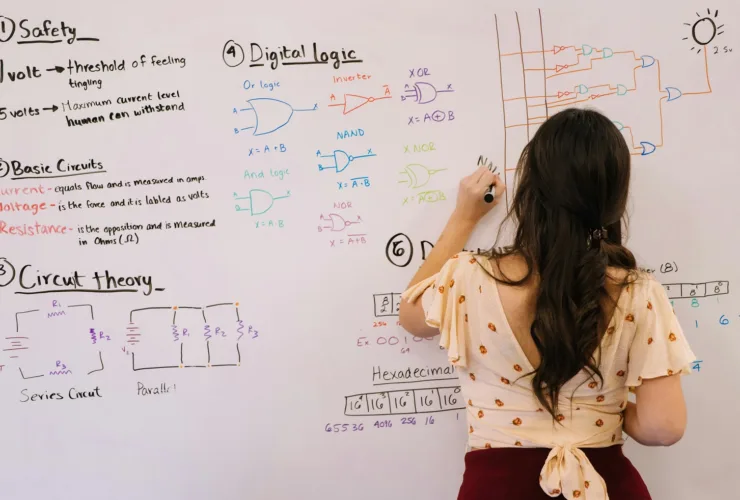 1 Safety
1 volt → threshold of feeling
tingling
5 volts → Maximum current level
human can withstand
2 Basic Circuits
Current - equals flow and is measured in amps
Voltage - is the force and it is labled as volts
Resistance - is the opposition and is measured
in Ohms (Ω)
3 Circut theory
R1
R2
R3
Series Circut
R1 R2 R3
Parallel
4 Digital logic
Or logic
A
B
X
X = A+B
Inverter
A
Ā
XOR
A
B
X
X = A⊕B
NAND
A
B
X
X = A̅·̅B̅
XNOR
A̅⊕̅B̅
And logic
A
X
X = A·B
NOR
A
B
X
X = A̅+̅B̅
2.5v
5 D
(B)
8 B¹ B⁰
256
Ex 00100
64
8 1
1 6
4
Hexadecimal
16⁴ 16³ 16² 16¹ 16⁰
65536 4096 256 16 1